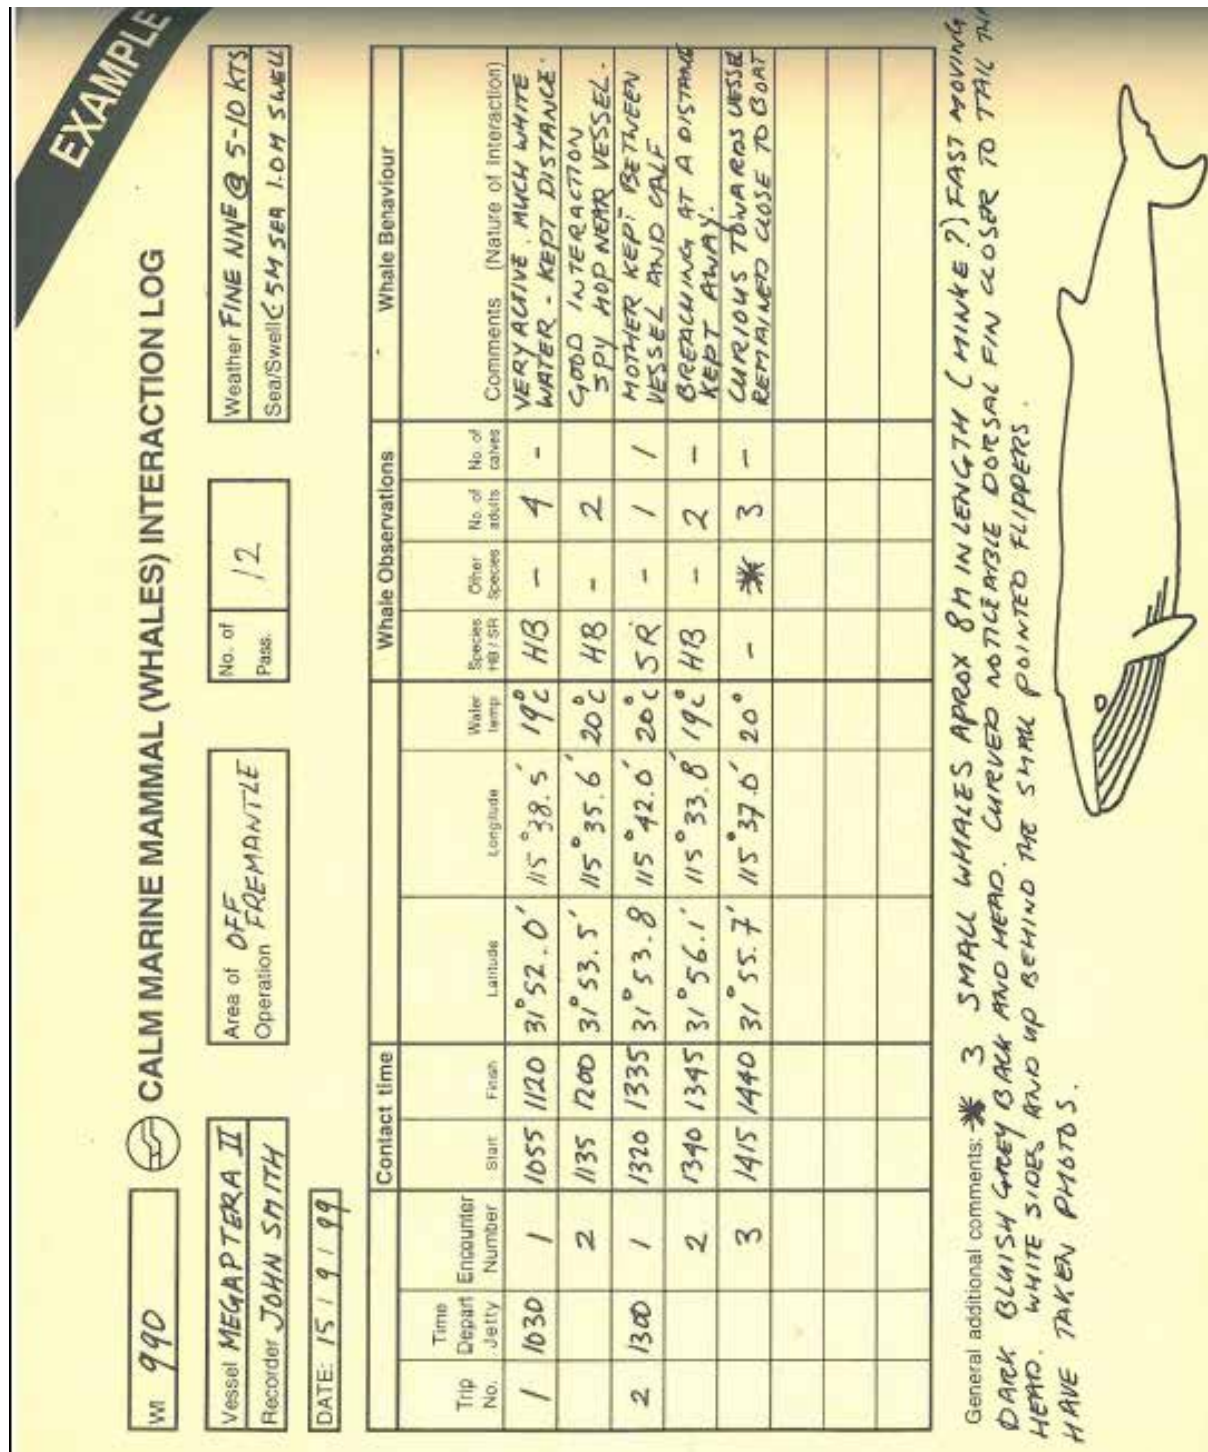 EXAMPLE
WI 990
CALM MARINE MAMMAL (WHALES) INTERACTION LOG
Vessel MEGAPTERA II
Recorder JOHN SMITH
Area of OFF
Operation FREMANTLE
No. of
Pass. 12
Weather FINE NNE @ 5-10 KTS
Sea/Swell <.5M SEA 1.0M SWELL
DATE: 15 / 9 / 99
Contact time Whale Observations Whale Behaviour
Trip No. Time Depart Jetty Encounter Number Start Finish Latitude Longitude Water temp Species HB / SR Other Species No. of adults No. of calves Comments (Nature of Interaction)
1 1030 1 1055 1120 31°52.0' 115°38.5' 19°C HB - 4 - VERY ACTIVE. MUCH WHITE
WATER - KEPT DISTANCE.
2 1135 1200 31°53.5' 115°35.6' 20°C HB - 2 GOOD INTERACTION
SPY HOP NEAR VESSEL.
2 1300 1 1320 1335 31°53.8 115°42.0' 20°C SR - 1 1 MOTHER KEPT BETWEEN
VESSEL AND CALF
2 1340 1345 31°56.1' 115°33.8' 19°C HB - 2 - BREACHING AT A DISTANCE
KEPT AWAY.
3 1415 1440 31°55.7' 115°37.0' 20° - * 3 - CURIOUS TOWARDS VESSEL
REMAINED CLOSE TO BOAT
General additional comments: * 3 SMALL WHALES APROX 8M IN LENGTH (MINKE ?) FAST MOVING
DARK BLUISH GREY BACK AND HEAD. CURVED NOTICEABLE DORSAL FIN CLOSER TO TAIL
HEAD. WHITE SIDES AND UP BEHIND THE SMALL POINTED FLIPPERS.
HAVE TAKEN PHOTOS.